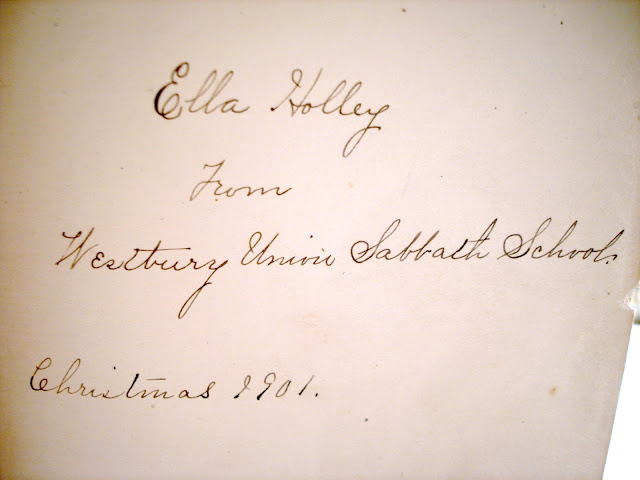 Ella Holley
From
Westbury Union Sabbath School.
Christmas 1901.